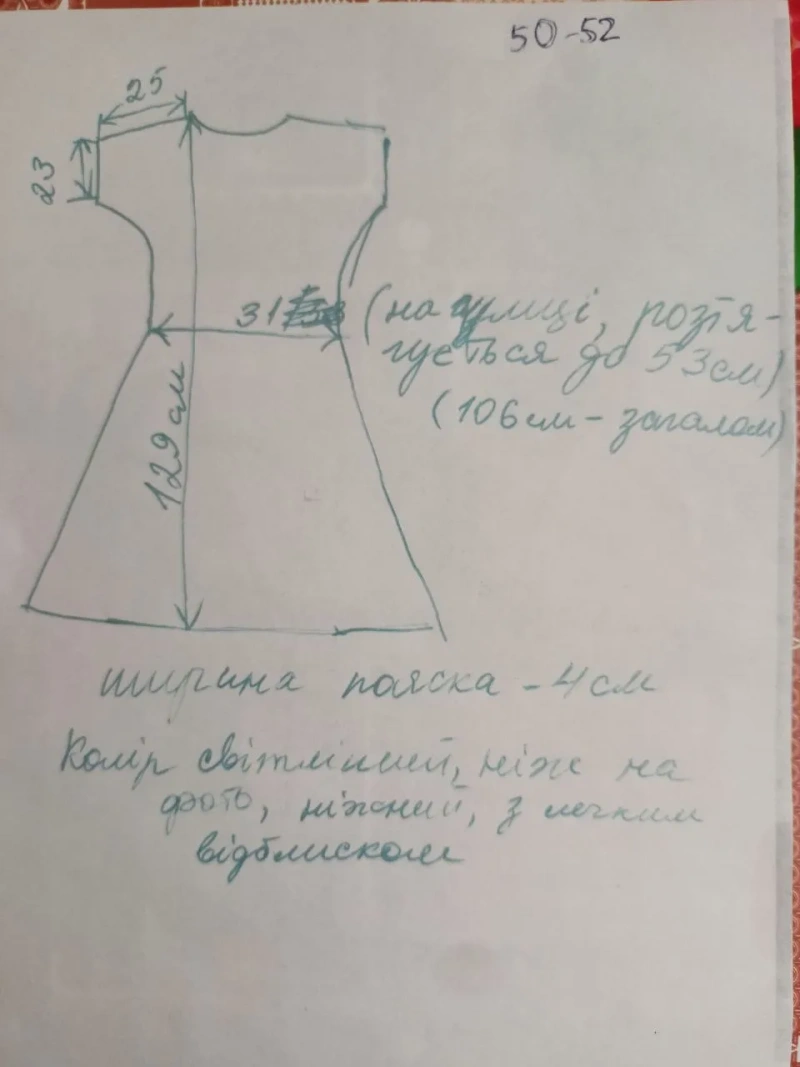 50-52
25
23
31 (на гумці, розтя-
гується до 53см)
(106см - загалом)
129см
ширина пояска - 4см
Колір світліший, ніж на
фото, ніжний, з легким
відблиском